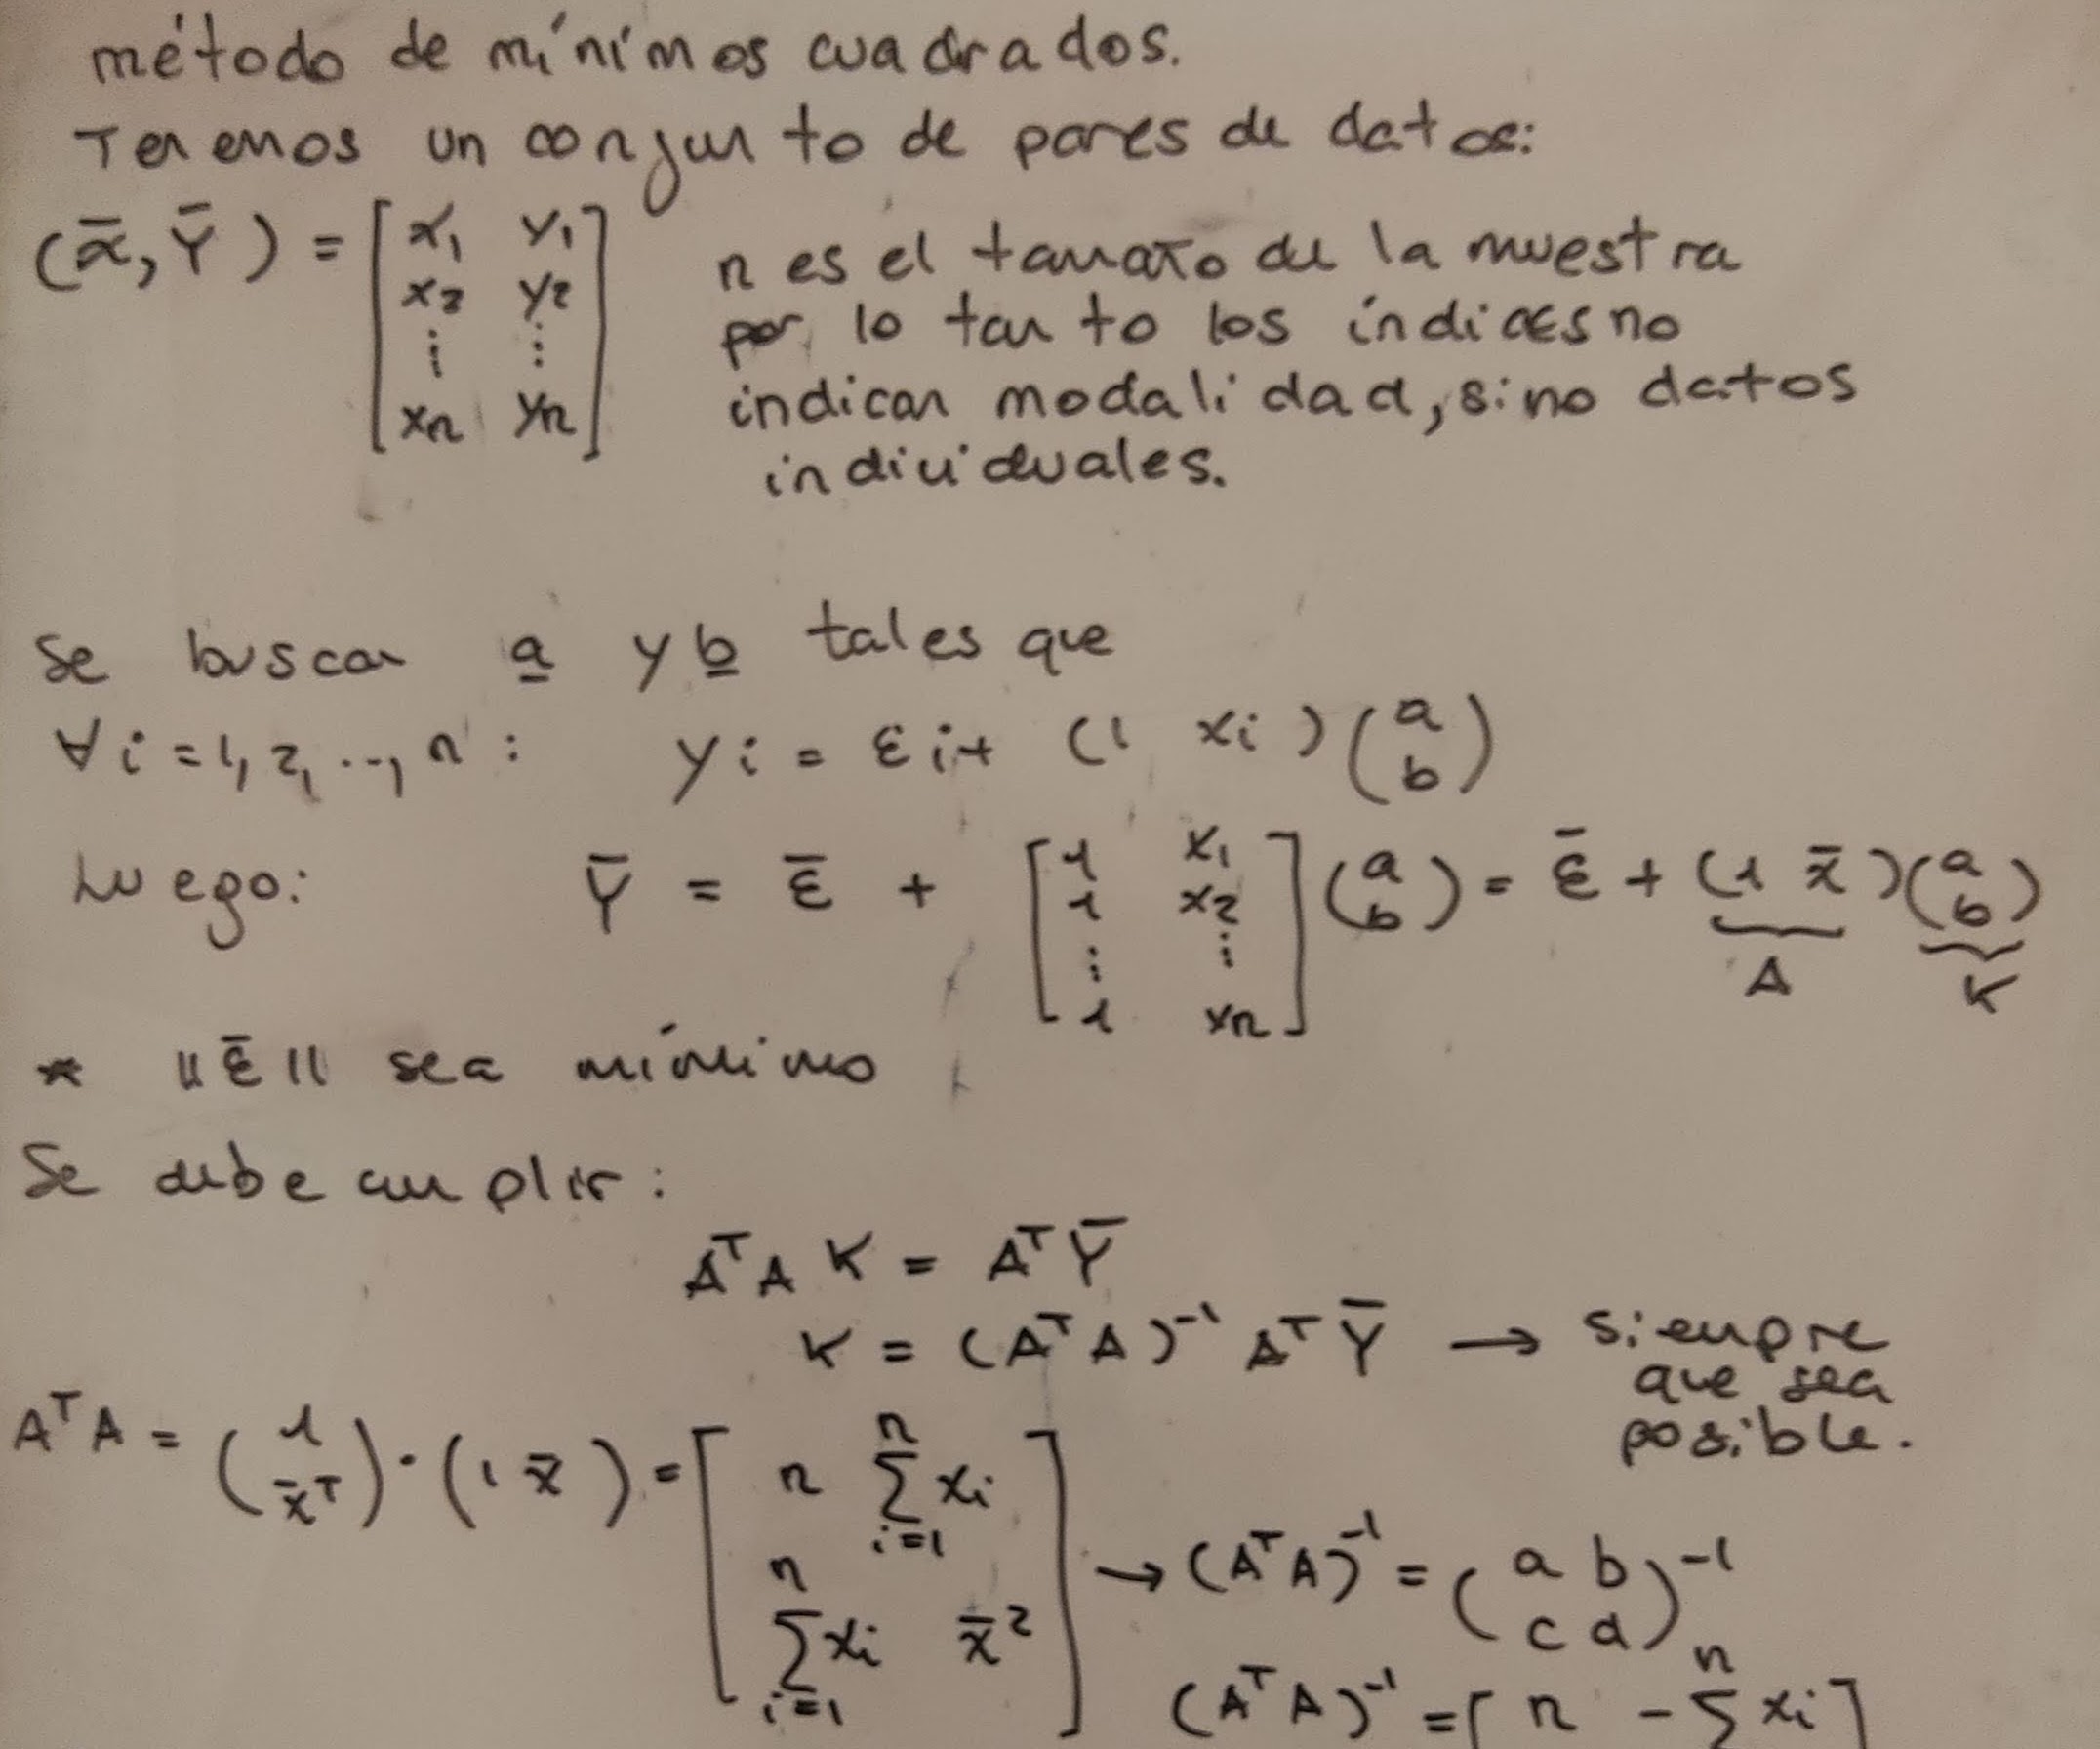 método de mínimos cuadrados.
Tenemos un conjunto de pares de datos:
(x̄, Ȳ) = [x₁ y₁; x₂ y₂; ⋮ ⋮; xn yn]
n es el tamaño de la muestra
por lo tanto los índices no
indican modalidad, sino datos
individuales.
Se buscan a y b tales que
∀i = 1, 2, .., n : yi = εi + (1 xi)(a b)
Luego: Ȳ = ε̄ + [1 x₁; 1 x₂; ⋮ ⋮; 1 xn](a b) = ε̄ + (1 x̄)(a b)
A K
* ||ε̄|| sea mínimo
Se debe cumplir:
AᵀA K = AᵀȲ
K = (AᵀA)⁻¹ AᵀȲ → siempre
que sea
posible.
AᵀA = (1; x̄ᵀ)·(1 x̄) = [n ∑ⁿᵢ₌₁ xi; ∑ⁿᵢ₌₁ xi x̄²] → (AᵀA)⁻¹ = (a b; c d)⁻¹
(AᵀA)⁻¹ = [n -∑ⁿ xi]